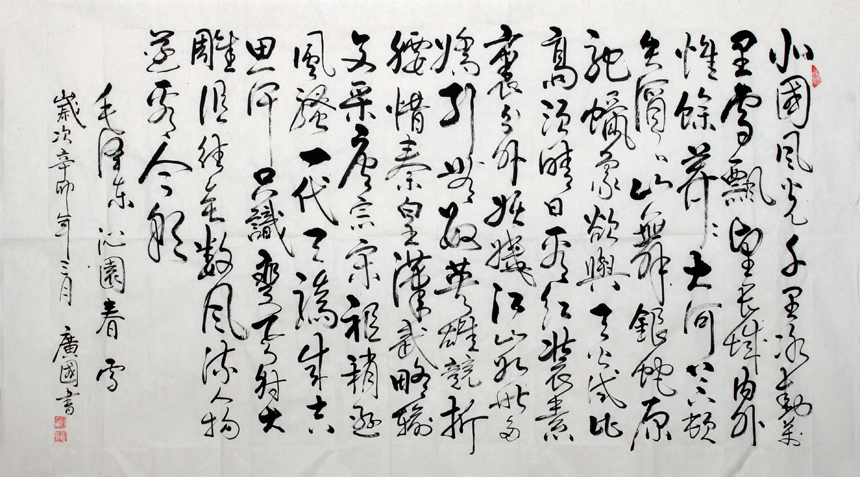 北國风光千里冰封萬
里雪飘望长城内外
惟餘莽〻大河上下頓
失滔〻山舞銀蛇原
驰蠟象欲與天公试比
高须晴日看红装素
裹分外妖嬈江山如此多
嬌引無数英雄競折
腰惜秦皇漢武略输
文采唐宗宋祖稍逊
風骚一代天骄成吉
思汗只識彎弓射大
雕俱往矣数风流人物
还看今朝
毛泽东 沁園春 雪
歲次辛卯年三月 廣國書